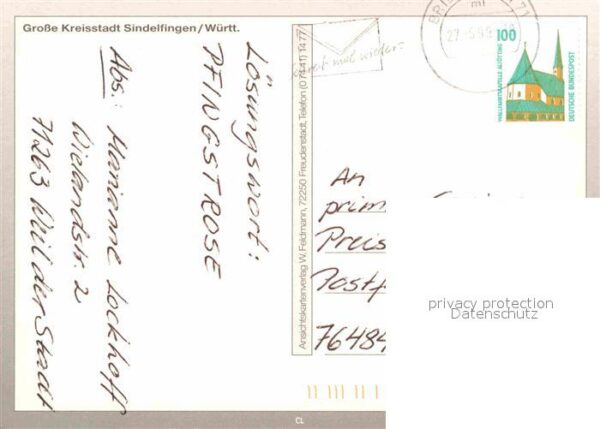 Große Kreisstadt Sindelfingen/Württ.
Lösungswort:
PFINGSTROSE
Abs: Marianne Lockhoff
Wielandstr. 2
71263 Weil der Stadt
Ansichtskartenverlag W. Feldmann, 72250 Freudenstadt, Telefon (0 74 41) 14 77
mal wieder
BRI
71
100
WALLFAHRTSKAPELLE ALTÖTTING
DEUTSCHE BUNDESPOST
An
prim
Preis
Postf
76484
privacy protection
Datenschutz
CL